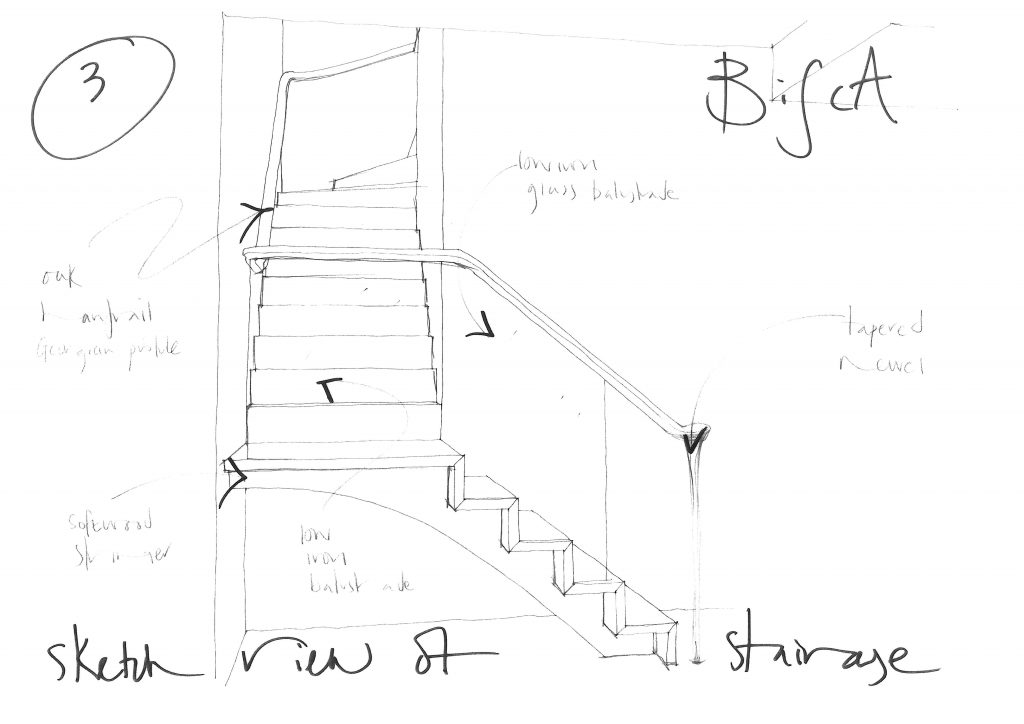 3
BifCA
low iron
glass balustrade
oak
handrail
Georgian profile
tapered
newel
softwood
stringer
low
iron
balustrade
sketch view of staircase